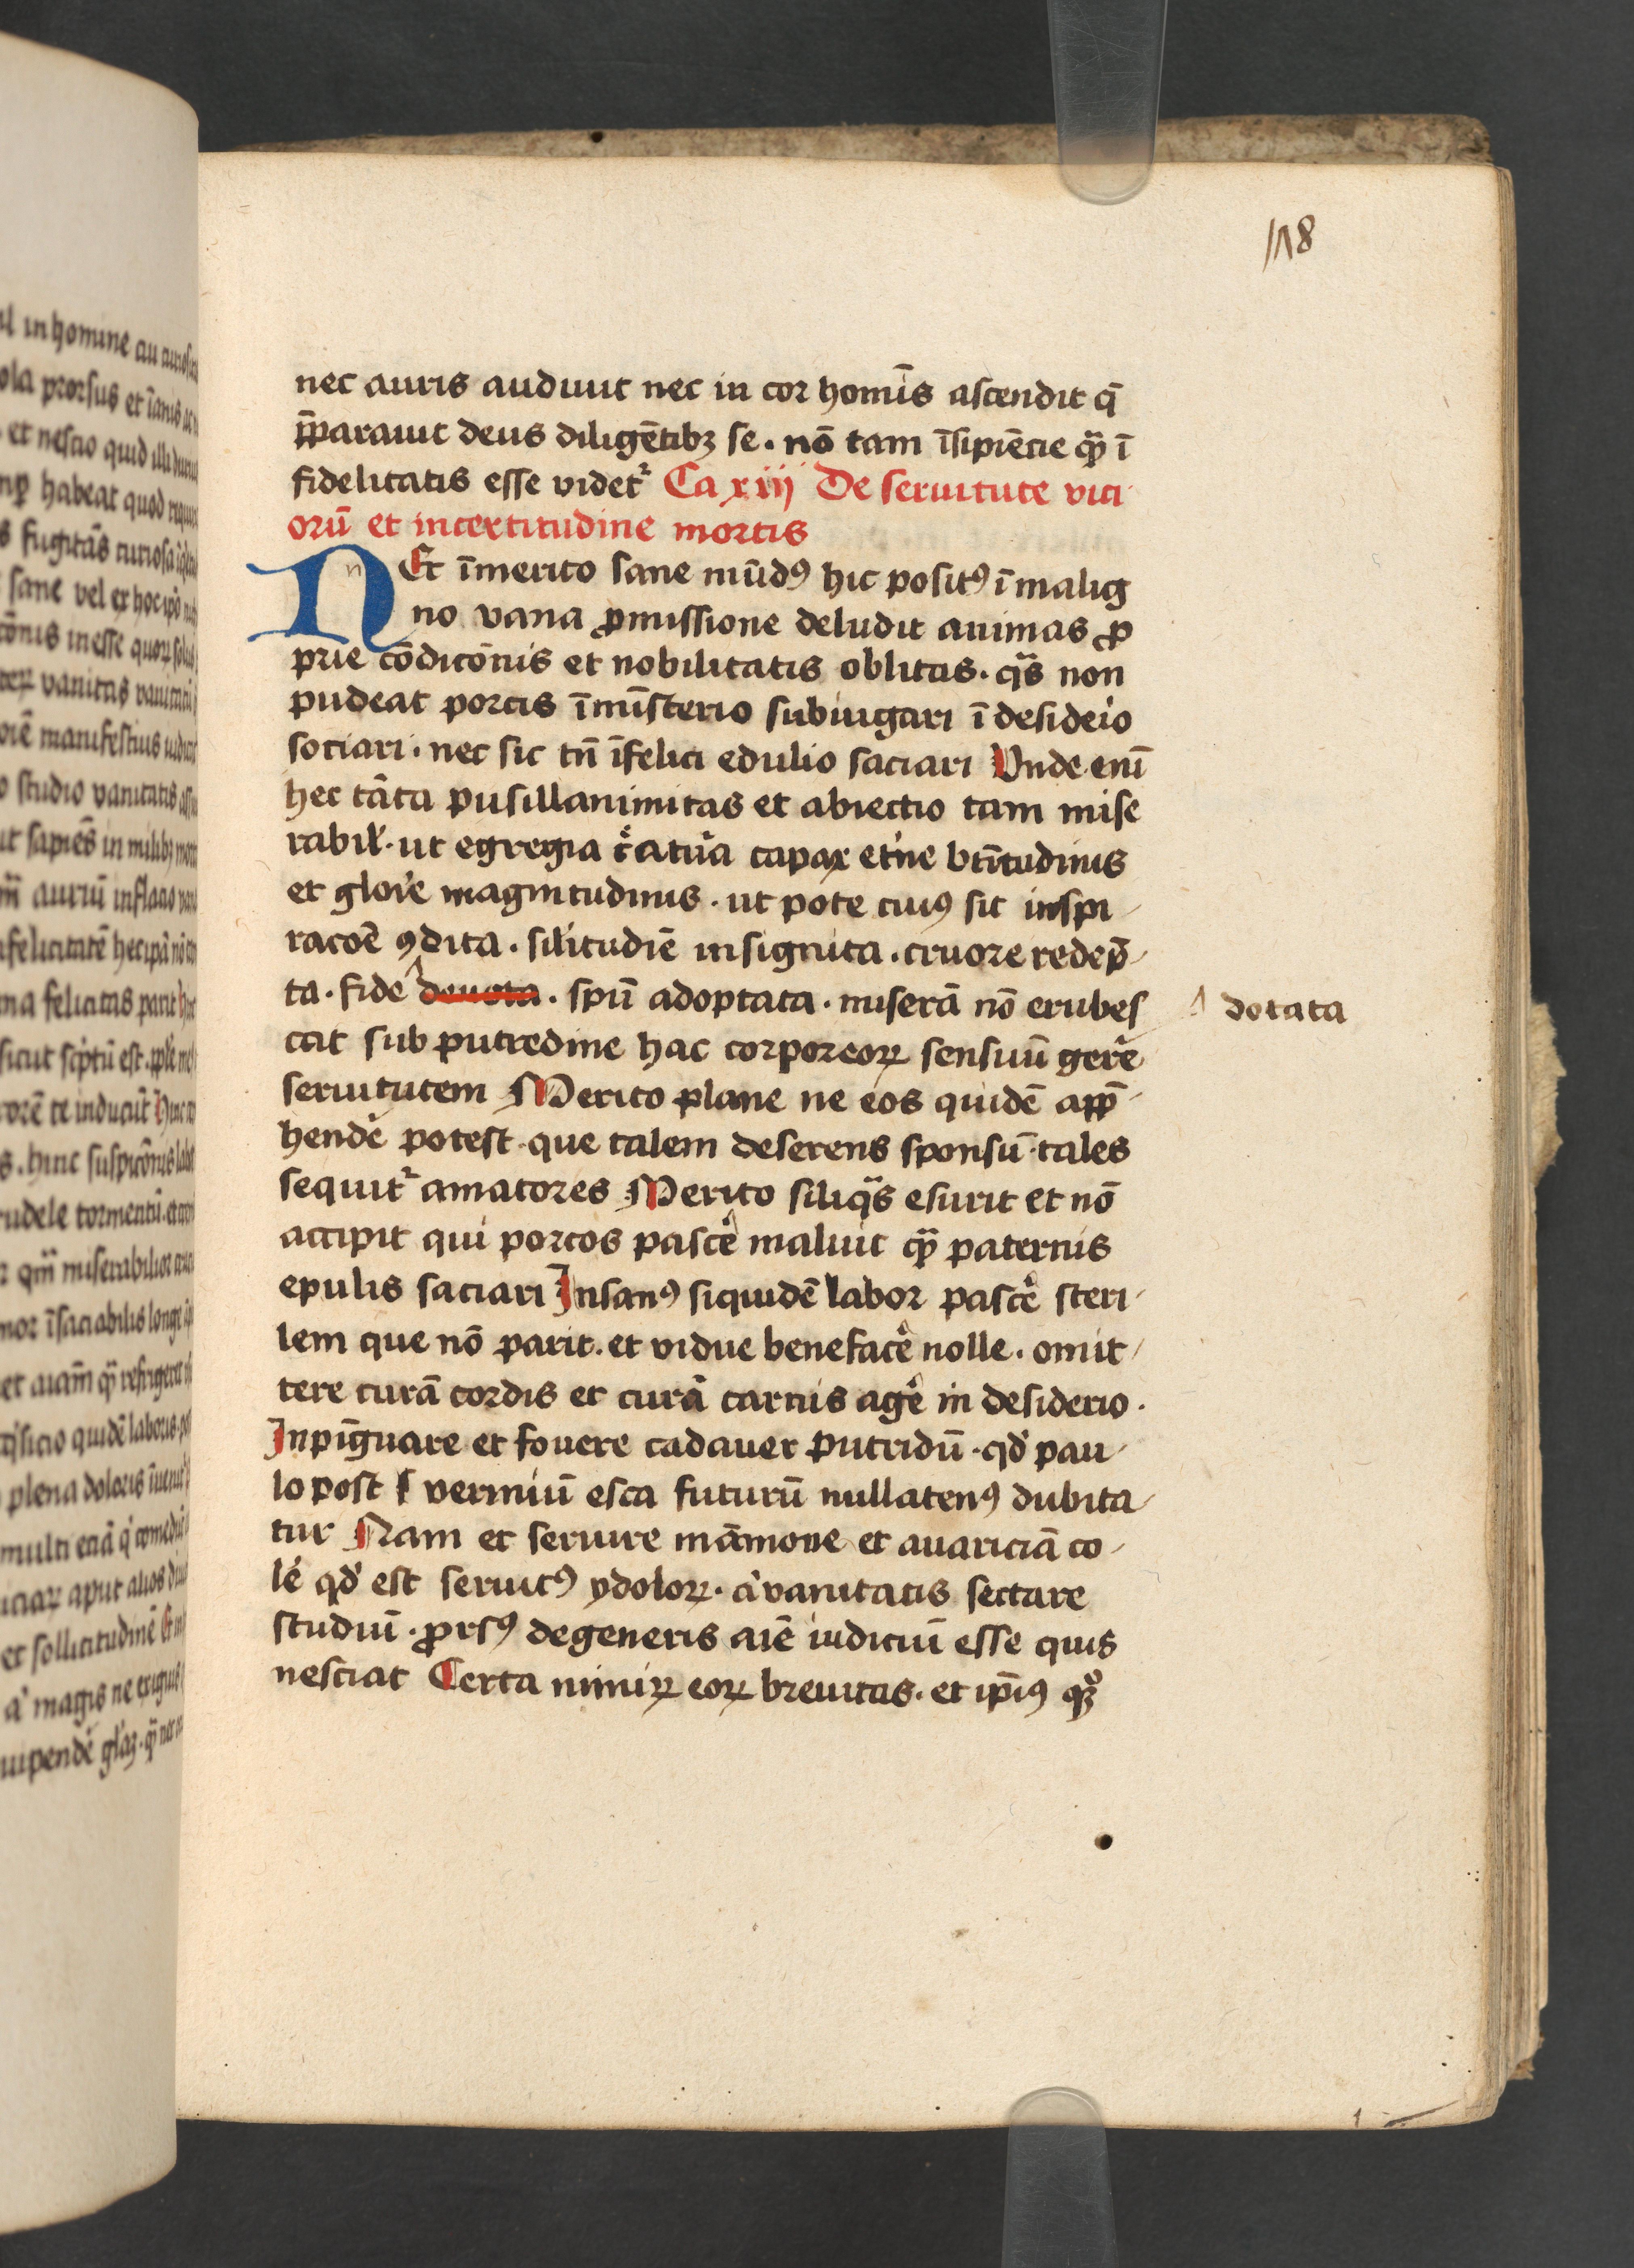 118
nec auris audiuit nec in cor homīs ascendit q̄
p̄parauit deus diligētibꝫ se. nō tam īsipiēcie qꝫ̄ ī
fidelitatis esse videt᷑ Ca xiij De seruitute vici
orū et incertitudine mortis
NEc īmerito sane mūdꝰ hic positꝰ ī malig
no vana ꝓmissione deludit animas ꝓ
prie cōdicōnis et nobilitatis oblitas. qᷓs non
pudeat porcis ī mīsterio subiugari ī desideio
sociari. nec sic tn̄ īfelici edulio saciari Vnde enī
hec tāta pusillanimitas et abiectio tam mise
rabil̓. ut egregia c̓atu̓a capax et̓ne btītudinis
et glor̓e magnitudinis. ut pote cuiꝰ sit inspi
racoē ꝯdita. sil̓itudiē insignita. cruore redēp
ta. fide deuota. spū adoptata. miserā nō erubes
dotata
cat sub putredine hac corporeoꝝ sensuū gere̓
seruitutem Merito plane ne eos quidē app̄
hende̓ potest. que talem deserens sponsū. tales
sequit᷑ amatores Merito siliqᷓs esurit et nō
accipit qui porcos pasce̓ maluit qꝫ̄ paternis
epulis saciari Insanꝰ siquidē labor pasce̓ steri
lem que nō parit. et vidue beneface̓ nolle. omit
tere curā cordis et curā carnis age̓ in desiderio.
Inpīguare et fouere cadauer putridū. qd̓ pau
lo post vermiū esca futurū nullatenꝰ dubita
tur Nam et seruire māmone et auariciā co
le̓ qd̓ est seruitꝰ ydoloꝝ. a̓ vanitatis sectare
studiū. ꝓrsꝰ degeneris aīe iudiciū esse quis
nesciat Certa nimiꝝ eoꝝ breuitas. et ip̄iꝰ qꝫͦ